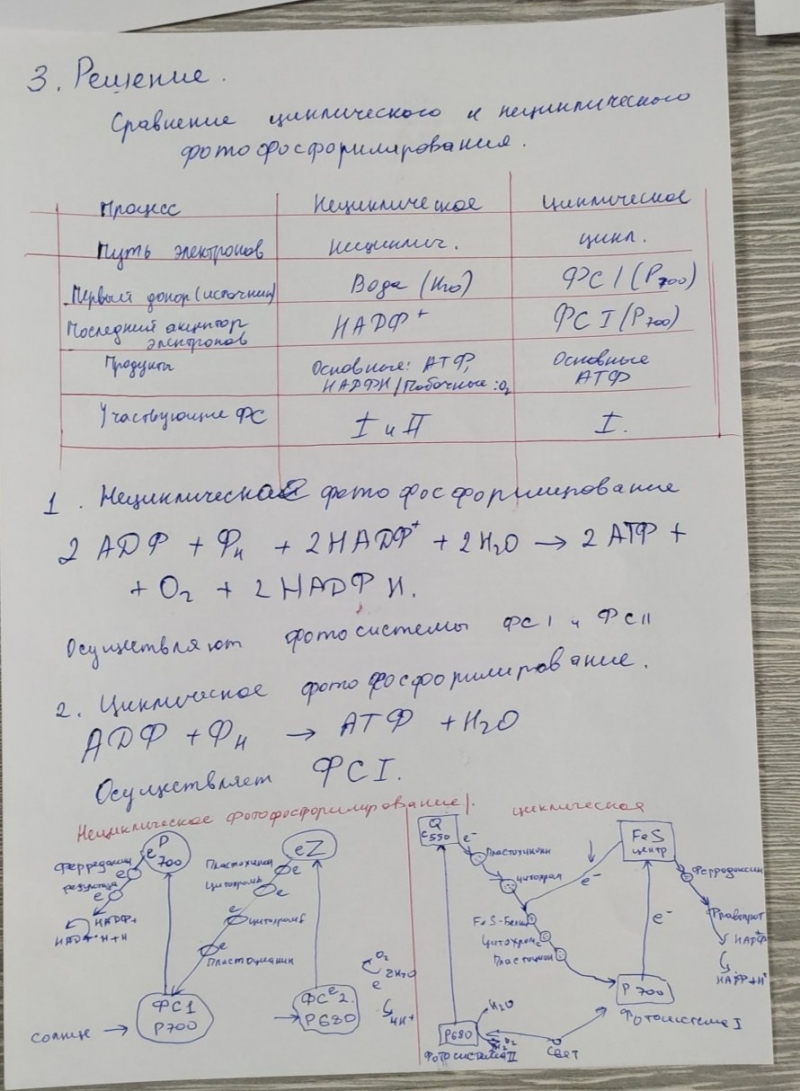 3. Решение.
Сравнение циклического и нециклического
фотофосфорилирования.
Процесс Нециклическое Циклическое
Путь электронов Нециклич. цикл.
Первый донор (источник) Вода (H2O) ФС I (P700)
Последний акцептор электронов НАДФ+ ФС I (P700)
Продукты Основные: АТФ, НАДФН / Побочные: O2 Основные АТФ
Участвующие ФС I и II I.
1. Нециклическое фотофосфорилирование
2 АДФ + Фн + 2НАДФ+ + 2H2O → 2 АТФ +
+ O2 + 2 НАДФ Н.
Осуществляют фотосистемы ФС I и ФС II
2. Циклическое фотофосфорилирование.
АДФ + Фн → АТФ + H2O
Осуществляет ФС I.
Нециклическое Фотофосфорилирование/. циклическая
P700
e
Ферредоксин
редуктаза
e
e
НАДФ+
НАДФ+Н+Н
eZ
Пластохинон
e
Цитохром
e
e
цитохромf
e
Пластоцианин
ФС1
P700
солнце →
ФСe2.
P680
O2
2H2O
e
4H+
Q
C550
e-
Пластохинон
цитохром
FeS-белки
Цитохром
Пластоциан
P680
H2O
O2
Фотосистема II
Свет
FeS
центр
e-
e-
Ферродоксин
Флавопрот
НАДФ+
НАДФ+Н+
P700
Фотосистема I